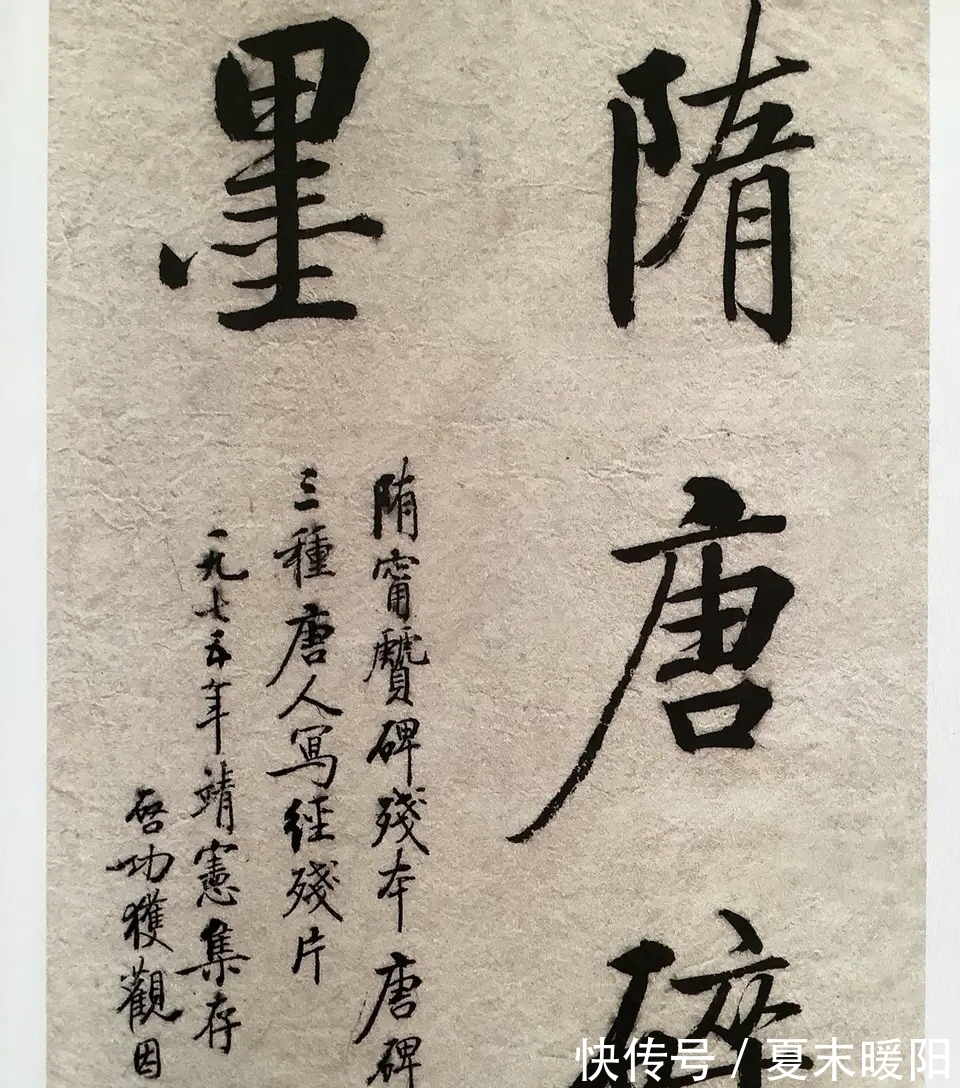 隋唐碎
墨
隋甯贙碑殘本 唐碑
三種唐人寫經殘片
一九七五年靖憲集存
啓功獲觀因
快传号 / 夏末暖阳